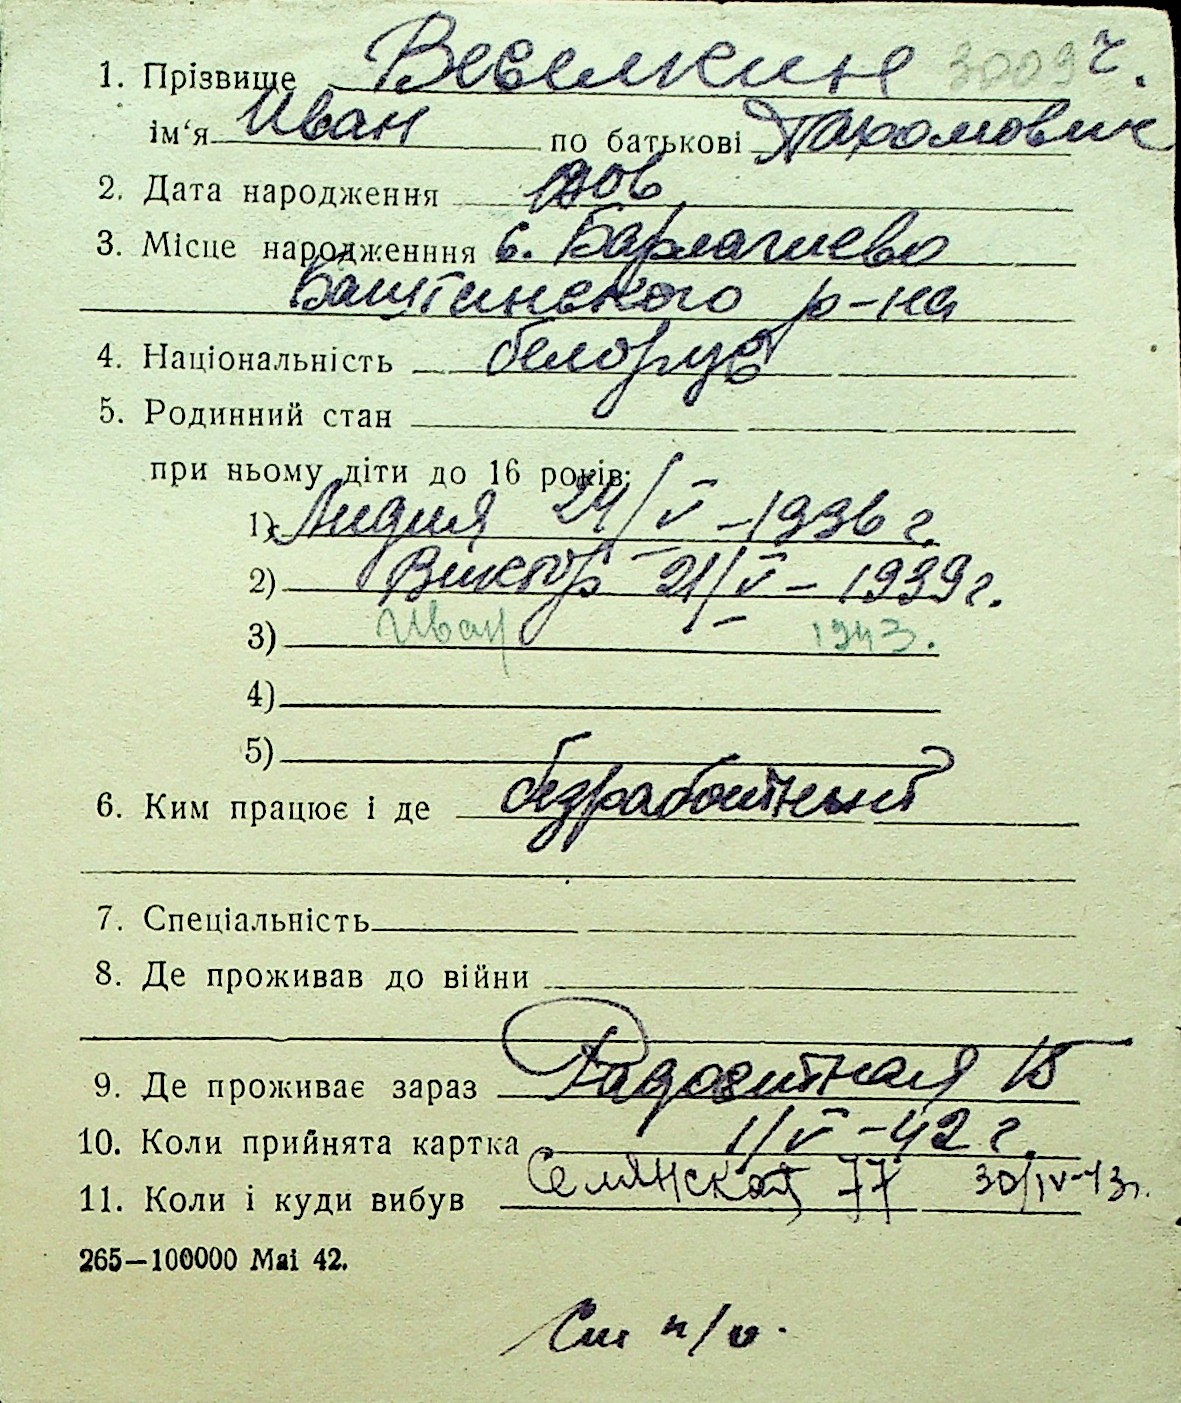 1. Прізвище Веселкин 3009 г.
ім'я Иван по батькові Пахомович
2. Дата народження 1906
3. Місце народженння с. Бармашево
Баштанского р-на
4. Національність белорус
5. Родинний стан
при ньому діти до 16 років:
1) Лидия 24/V-1936 г.
2) Виктор 21/V-1939 г.
3) Иван 1943.
4)
5)
6. Ким працює і де безработный
7. Спеціальність
8. Де проживав до війни
9. Де проживає зараз 18
10. Коли прийнята картка 1/V-42 г.
11. Коли і куди вибув Селянская 77 30/IV-43г.
265—100000 Mai 42.
См н/о.